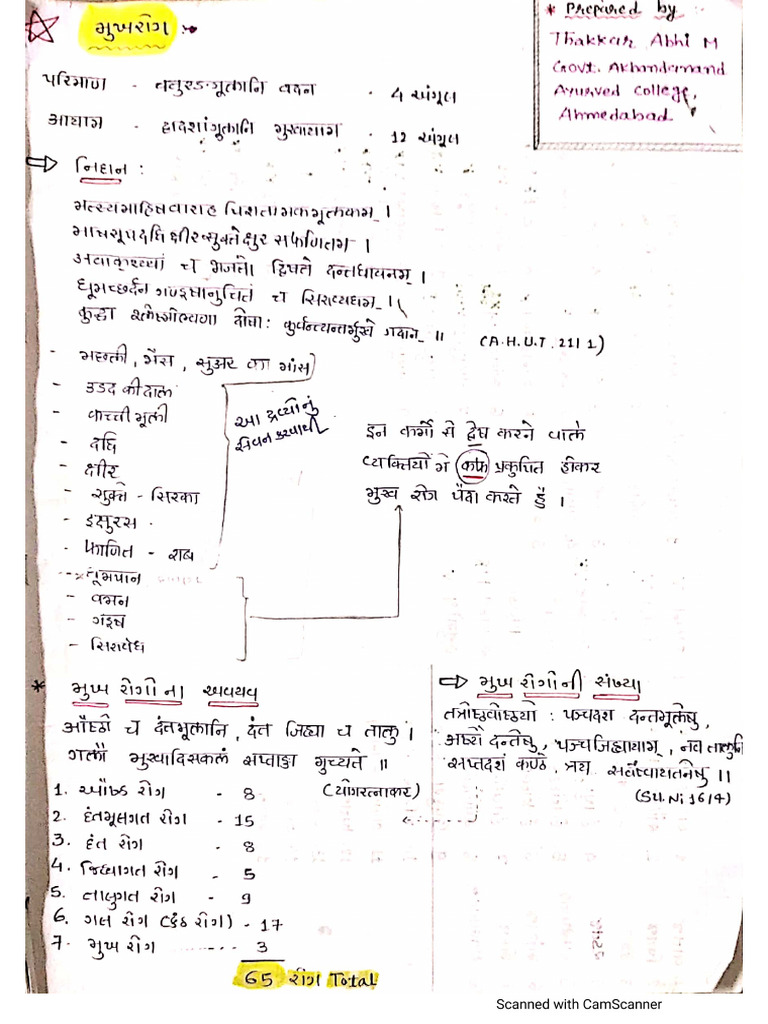 मुखरोग :-
* Prepared by :
Thakkar Abhi M
Govt. Akhandanand
Ayurved College,
Ahmedabad
परिमाण - वदन - 4 અંગૂલ
आयाम - 12 અંગૂલ
⇒ निदान :
मत्स्यमाहिषवाराह पिशितामकमूलकम् ।
माषसूपदधि क्षीर सुक्तेक्षुर सफणितम ।
अवाक्शय्यां च भजतो द्विषतो दन्तधावनम् ।
धूमच्छर्दन गण्डूषानुचितं च सिराव्यधम् ।
क्रुद्धा श्लेष्मोल्बणा दोषाः कुर्वन्त्यन्तर्मुखे गदान् ॥
(A.H.U.T. 21/1)
- मछली, भैंस, सुअर का मांस
- उडद की दाल
- कच्ची मूली
- दधि
- क्षीर
- शुक्त - सिरका
- इक्षुरस
- फाणित - राब
આ દ્રવ્યોનું
સેવન કરવાથી
इन कर्मो से द्वेष करने वाले
व्यक्तियों मे कफ प्रकुपित होकर
मुख रोग पैदा करते है ।
- धूमपान
- वमन
- गंडूष
- सिरावेध
* મુખ રોગોના અવયવ
औष्ठौ च दंतमूलानि, दंत जिह्वा च तालु ।
गलौ मुखादिसकलं सप्ताङ्गा मुच्यते ॥
(योगरत्नाकर)
1. ઔષ્ઠ રોગ - 8
2. દંતમૂલગત રોગ - 15
3. દંત રોગ - 8
4. જિહ્વાગત રોગ - 5
5. તાલુગત રોગ - 9
6. ગલ રોગ (કંઠ રોગ) - 17
7. મુખ રોગ - 3
65 રોગ Total
⇒ મુખ રોગોની સંખ્યા
पञ्चदश दन्तमूलेषु,
अष्टौ दन्तेषु, पञ्चजिह्वायाम्, नव तालुनि
सप्तदश कण्ठे, त्रय सर्वेष्वायतनेषु ॥
(SU.Ni 16/4)
Scanned with CamScanner